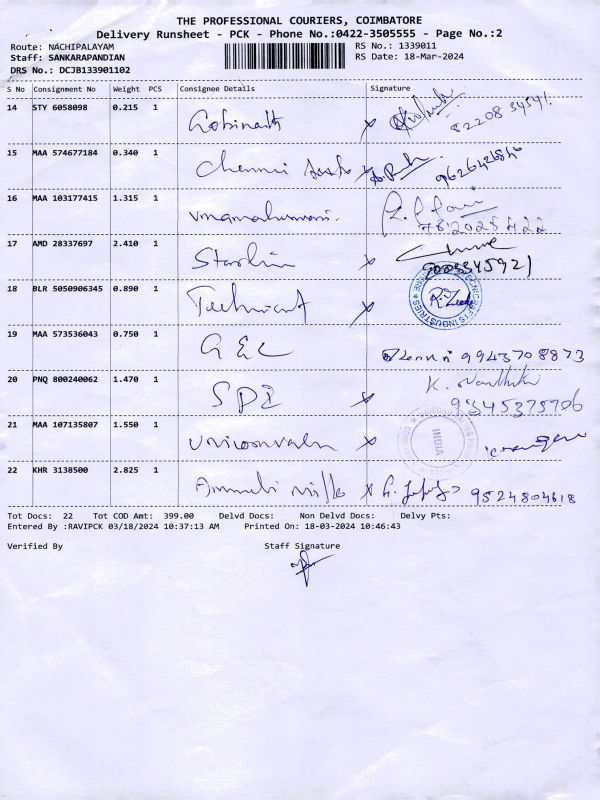 THE PROFESSIONAL COURIERS, COIMBATORE
Delivery Runsheet - PCK - Phone No.:0422-3505555 - Page No.:2
Route: NACHIPALAYAM RS No.: 1339011
Staff: SANKARAPANDIAN RS Date: 18-Mar-2024
DRS No.: DCJB133901102
S No Consignment No Weight PCS Consignee Details Signature
14 STY 6058098 0.215 1 Gobinath x
15 MAA 574677184 0.340 1 Chennai
16 MAA 103177415 1.315 1
17 AMD 28337697 2.410 1 Starlin x
18 BLR 5050906345 0.890 1 Technicat x
INDUSTRIES
19 MAA 573536043 0.750 1 GEC 9943708873
20 PNQ 800240062 1.470 1 SPI x K.
9345375706
21 MAA 107135807 1.550 1 x
INDIA
22 KHR 3138500 2.825 1 Mills x 9524804618
Tot Docs: 22 Tot COD Amt: 399.00 Delvd Docs: Non Delvd Docs: Delvy Pts:
Entered By :RAVIPCK 03/18/2024 10:37:13 AM Printed On: 18-03-2024 10:46:43
Verified By Staff Signature